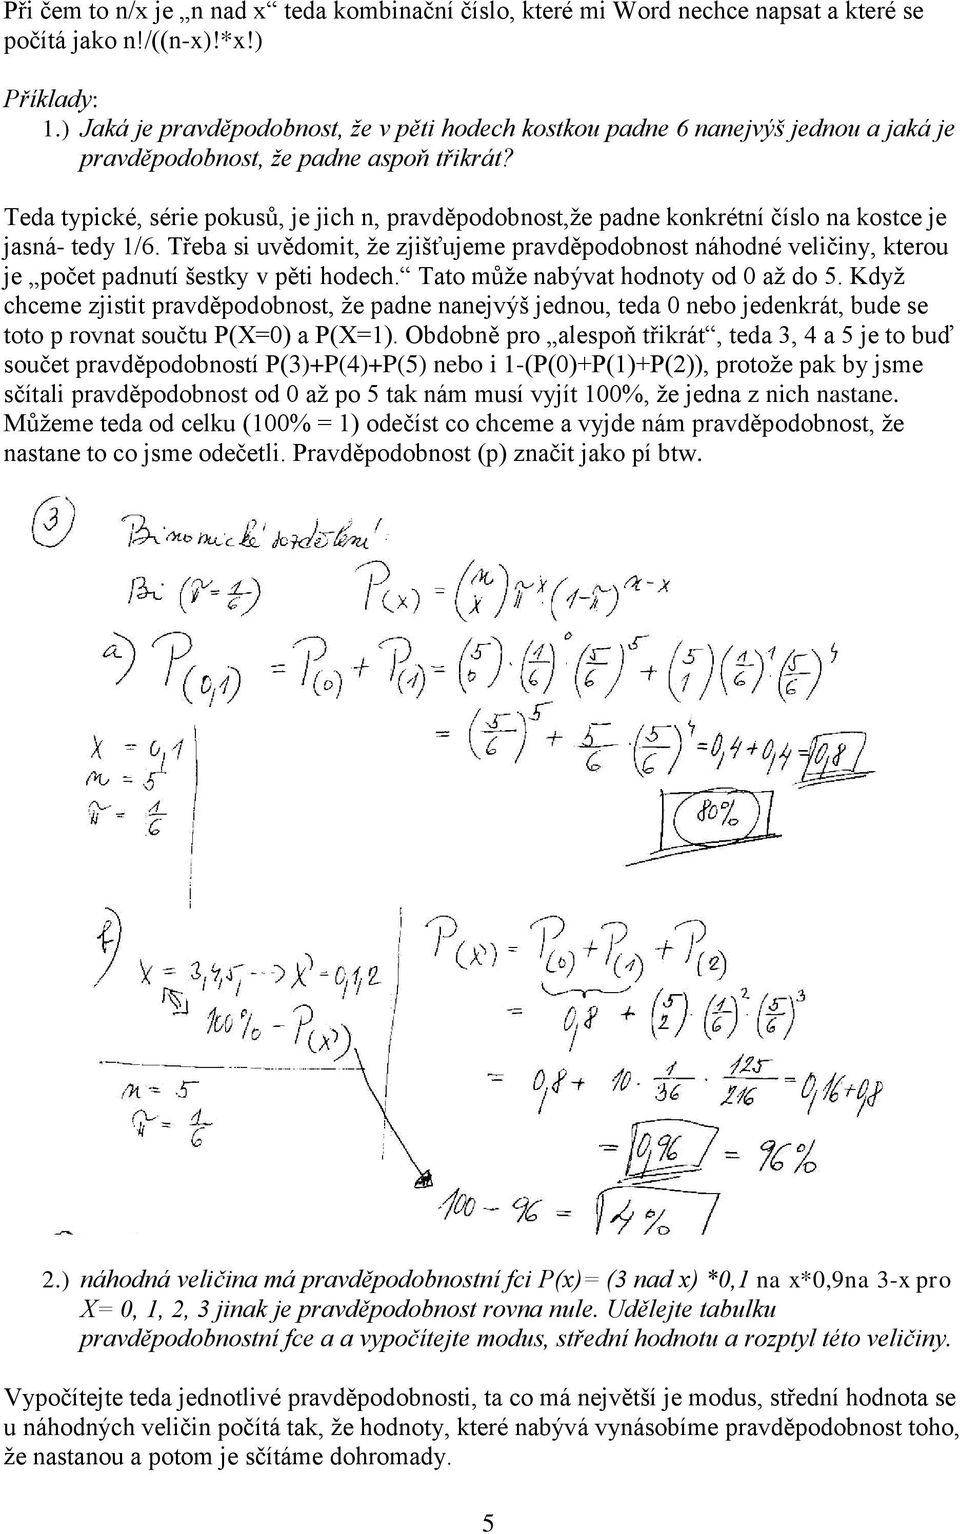 Při čem to n/x je „n nad x“ teda kombinační číslo, které mi Word nechce napsat a které se
počítá jako n!/((n-x)!*x!)
Příklady:
1.) Jaká je pravděpodobnost, že v pěti hodech kostkou padne 6 nanejvýš jednou a jaká je
pravděpodobnost, že padne aspoň třikrát?
Teda typické, série pokusů, je jich n, pravděpodobnost,že padne konkrétní číslo na kostce je
jasná- tedy 1/6. Třeba si uvědomit, že zjišťujeme pravděpodobnost náhodné veličiny, kterou
je „počet padnutí šestky v pěti hodech.“ Tato může nabývat hodnoty od 0 až do 5. Když
chceme zjistit pravděpodobnost, že padne nanejvýš jednou, teda 0 nebo jedenkrát, bude se
toto p rovnat součtu P(X=0) a P(X=1). Obdobně pro „alespoň třikrát“, teda 3, 4 a 5 je to buď
součet pravděpodobností P(3)+P(4)+P(5) nebo i 1-(P(0)+P(1)+P(2)), protože pak by jsme
sčítali pravděpodobnost od 0 až po 5 tak nám musí vyjít 100%, že jedna z nich nastane.
Můžeme teda od celku (100% = 1) odečíst co chceme a vyjde nám pravděpodobnost, že
nastane to co jsme odečetli. Pravděpodobnost (p) značit jako pí btw.
3 Binomické rozdělení:
Bi (π = 1/6) P(x) = (n x) π^x · (1-π)^n-x
a) P(0,1) = P(0) + P(1) = (5 0) · (1/6)^0 · (5/6)^5 + (5 1) (1/6)^1 · (5/6)^4
= (5/6)^5 + 5/6 · (5/6)^4 = 0,4 + 0,4 = 0,8
X = 0,1
n = 5
π = 1/6
80%
b) P(x') = P(0) + P(1) + P(2)
X = 3,4,5, ---> X' = 0,1,2
= 0,8 + (5 2) · (1/6)^2 · (5/6)^3
100% - P(x')
n = 5
= 0,8 + 10 · 1/36 · 125/216 = 0,16 + 0,8
π = 1/6
= 0,96 = 96%
100 - 96 = 4%
2.) náhodná veličina má pravděpodobnostní fci P(x)= (3 nad x) *0,1 na x*0,9na 3-x pro
X= 0, 1, 2, 3 jinak je pravděpodobnost rovna nule. Udělejte tabulku
pravděpodobnostní fce a a vypočítejte modus, střední hodnotu a rozptyl této veličiny.
Vypočítejte teda jednotlivé pravděpodobnosti, ta co má největší je modus, střední hodnota se
u náhodných veličin počítá tak, že hodnoty, které nabývá vynásobíme pravděpodobnost toho,
že nastanou a potom je sčítáme dohromady.
5